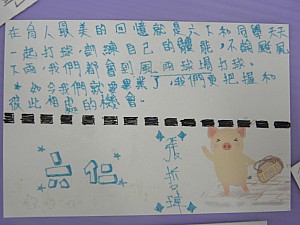 在育人最美的回憶就是六下和同學天天
一起打球，鍛鍊自己的體能，不論颱風
下雨，我們都會到風雨球場打球。
如今我們就要畢業了，我們更把握和
彼此相處的機會。
品仁
張哲瑋